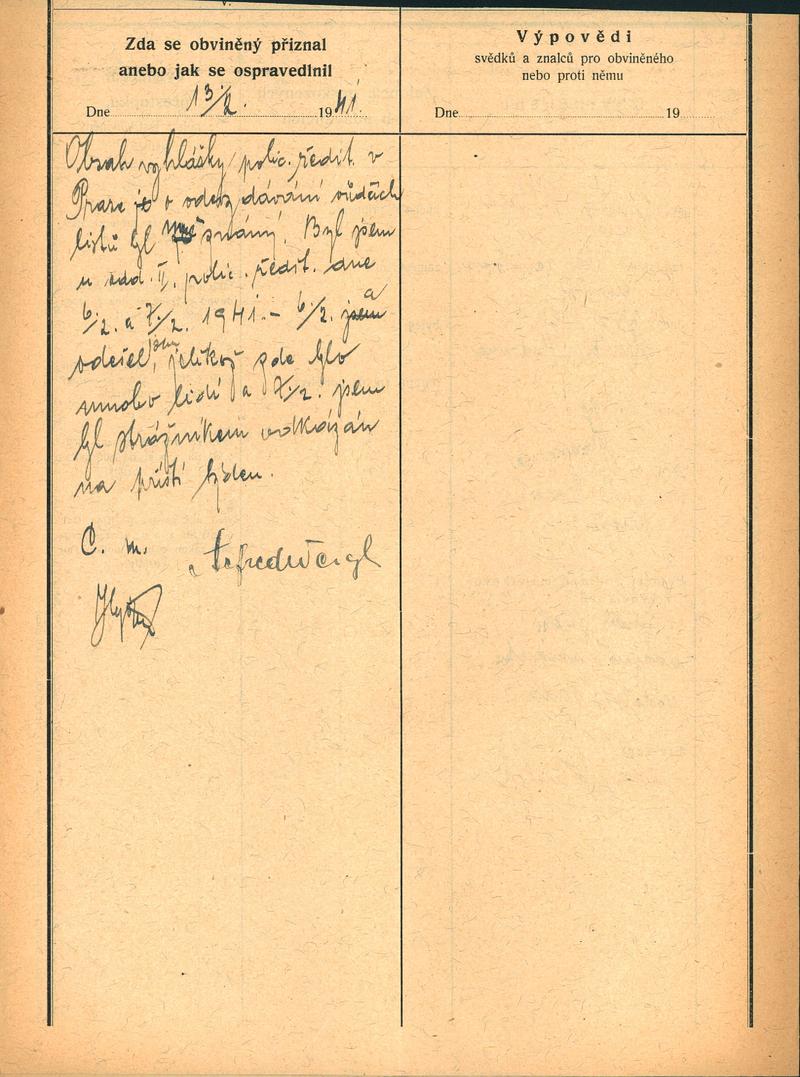 Zda se obviněný přiznal
anebo jak se ospravedlnil
Dne 13./2. 1941.
Obsah vyhlášky polic. ředit. v
Praze o odevzdávání vůdčích
listů byl mně známý. Byl jsem
u odd. II. polic. ředit. dne
6./2. a 7./2. 1941.- 6./2. jsem a
odešel jsem, jelikož zde bylo
mnoho lidí a 7./2. jsem
byl strážníkem odkázán
na příští týden.
Č. m.
Výpovědi
svědků a znalců pro obviněného
nebo proti němu
Dne 19